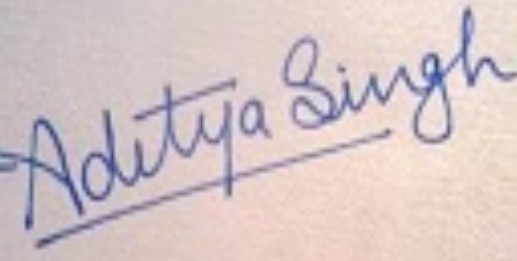 Aditya Singh